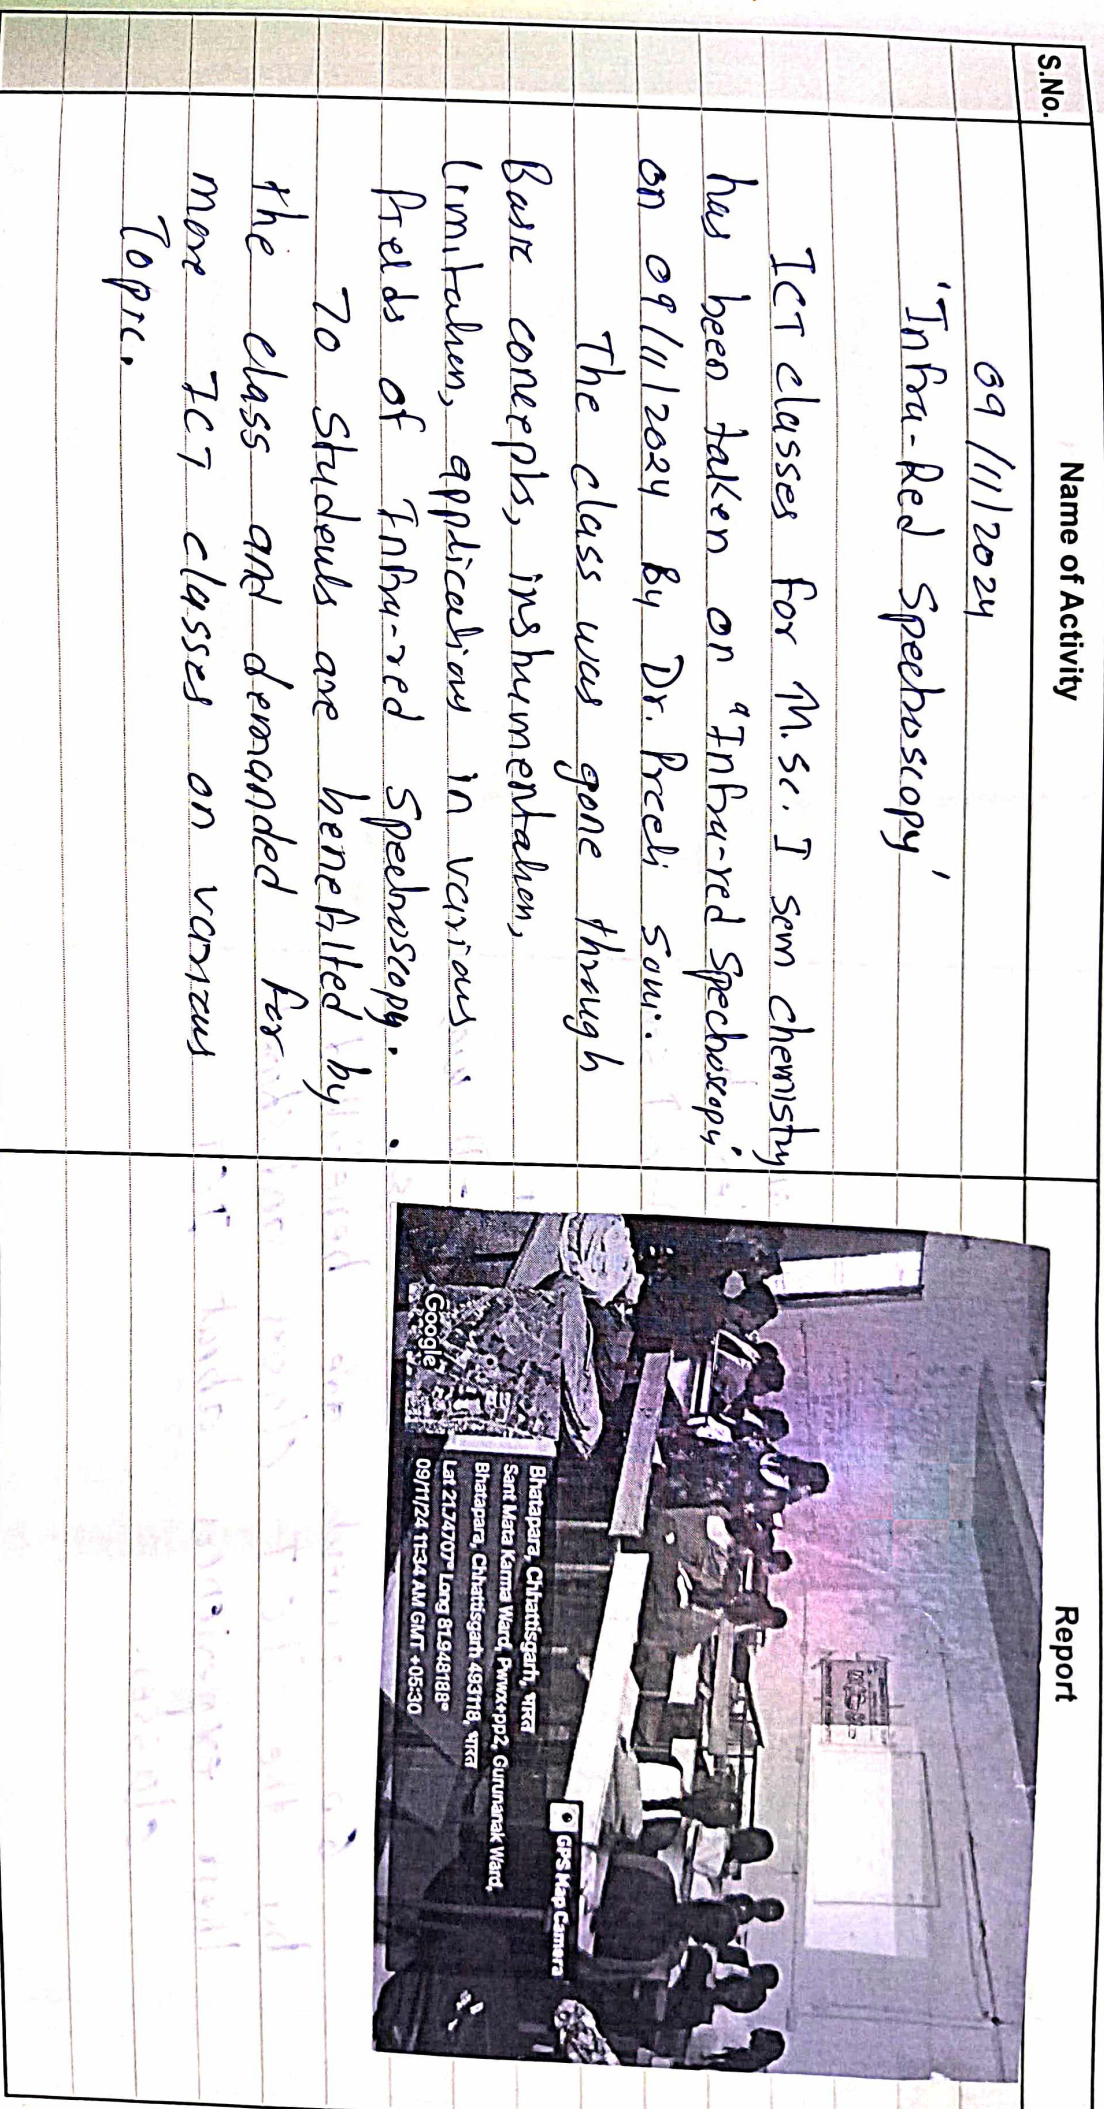 S.No.
Name of Activity
Report
09/11/2024
'Infra-Red Spectroscopy'
ICT classes for M.Sc. I sem chemistry
has been taken on "Infra-red Spectroscopy"
on 09/11/2024 By Dr. Preeti Soni.
The class was gone through
Basic concepts, instrumentation,
limitation, applications in various
fields of Infra-red Spectroscopy.
70 Students are benefitted by
the class and demanded for
more ICT classes on various
Topic.
GPS Map Camera
Bhatapara, Chhattisgarh, भारत
Sant Mata Karma Ward, Pwwx+pp2, Gurunanak Ward,
Bhatapara, Chhattisgarh 493118, भारत
Lat 21.74707° Long 81.948188°
09/11/24 11:34 AM GMT +05:30
Google